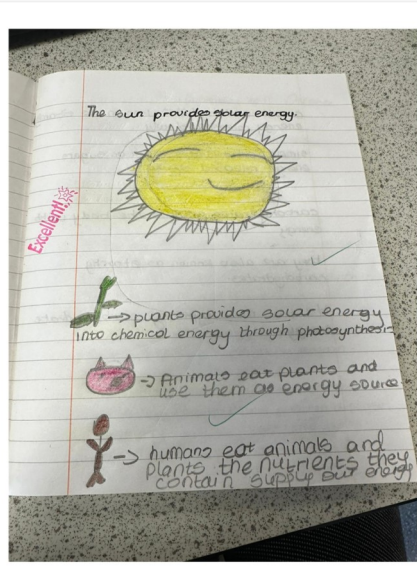 The sun provides solar energy.
Excellent!
→ plants provides solar energy
into chemical energy through photosynthesis
→ Animals eat plants and
use them as energy source
→ humans eat animals and
plants the nutrients they
contain supply our energy